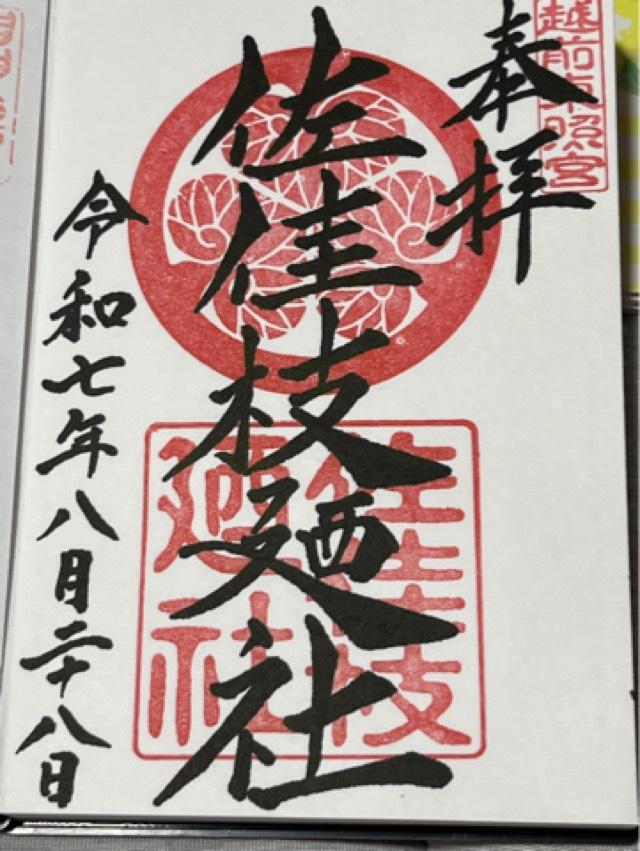 越前東照宮
奉拝
佐佳枝廼社
佐佳枝
廼社
令和七年八月二十八日